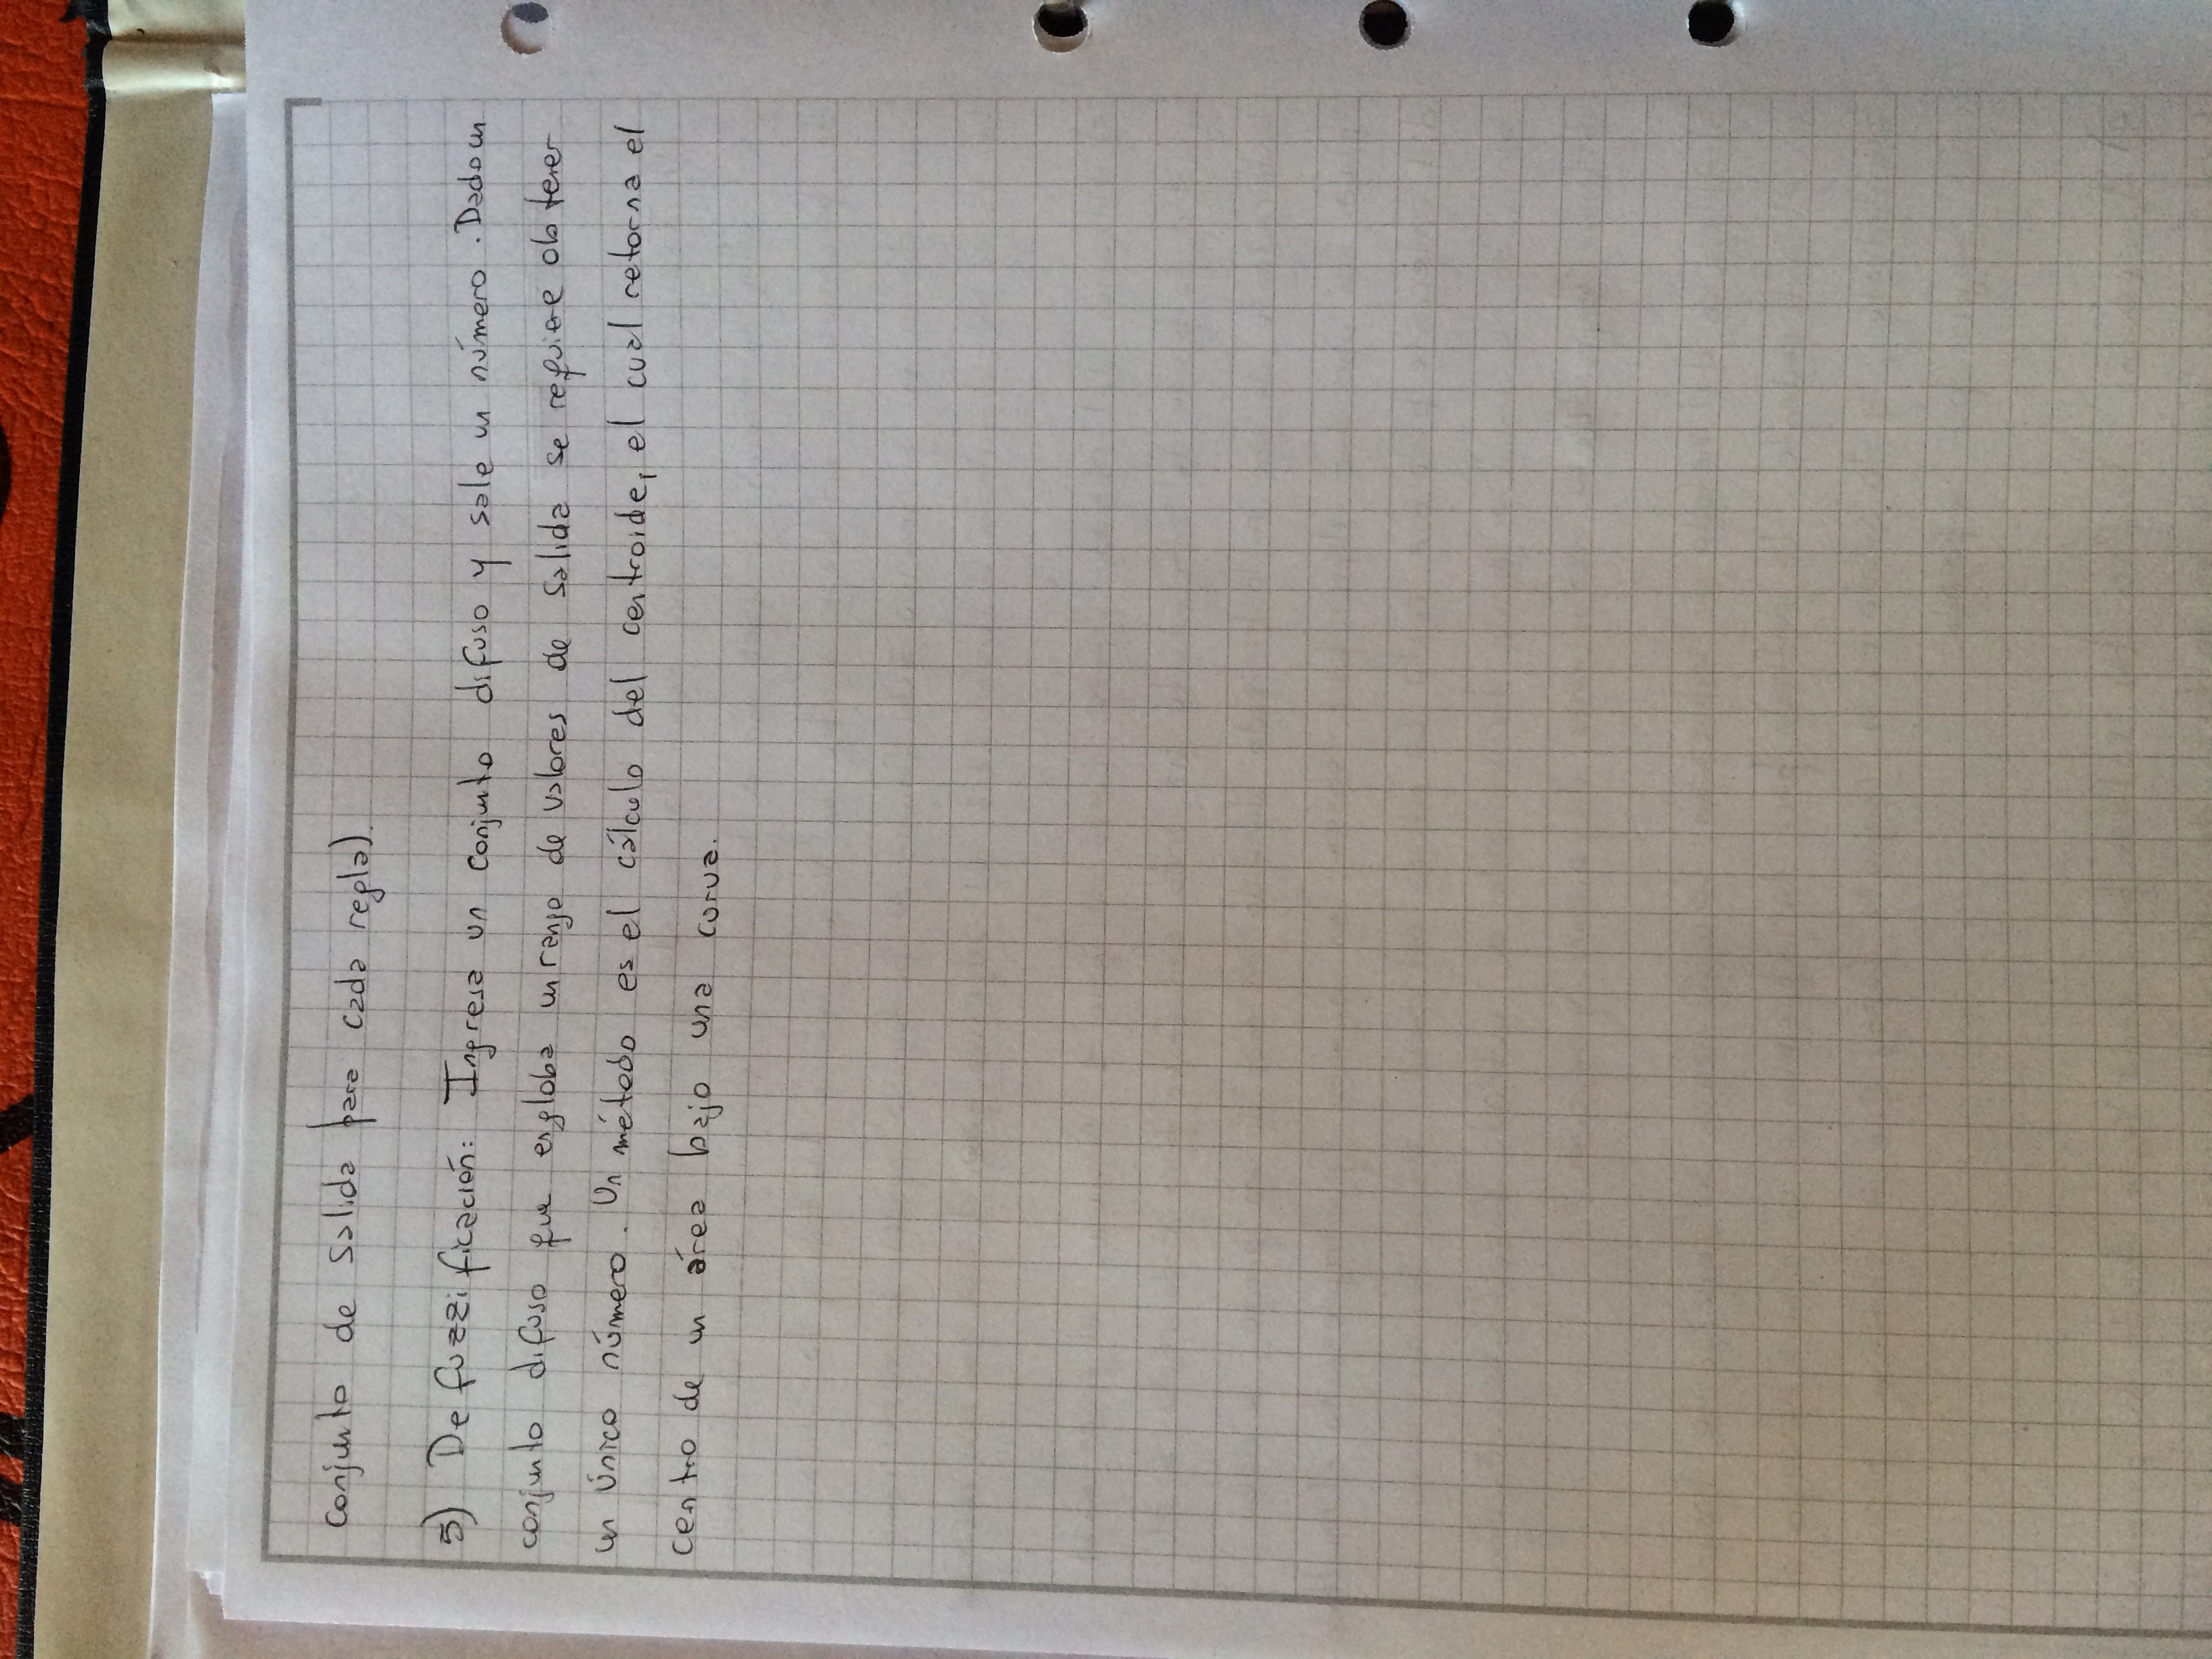 conjunto de salida para cada regla).
5) Defuzzificación: Ingresa un conjunto difuso y sale un número. Dado un
conjunto difuso que engloba un rango de valores de salida se requiere obtener
un único número. Un método es el cálculo del centroide, el cual retorna el
centro de un área bajo una curva.